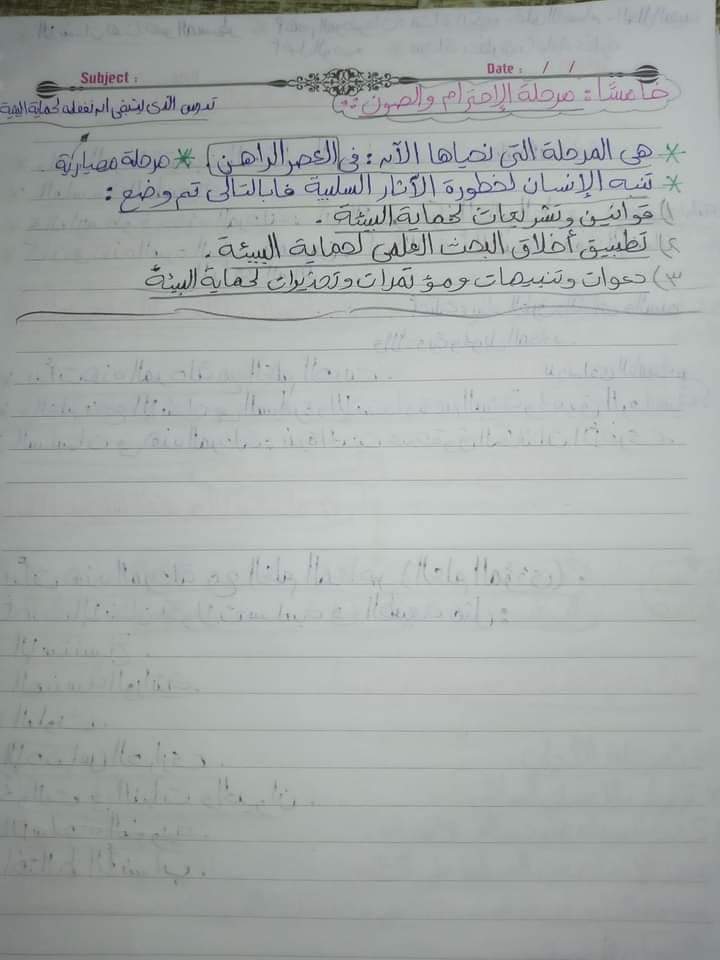 Subject :
Date : / /
خامسًا: مرحلة الإحترام والصون :-
تدرس الذى ينبغى أن نفعله لحماية البيئة
* هى المرحلة التى نحياها الآن : فى (العصر الراهن) * مرحلة
* تنبه الإنسان لخطورة الآثار السلبية فابالتالى تم وضع :
١) قوانين وتشريعات لحماية البيئة .
٢) تطبيق أخلاق البحث العلمى لحماية البيئة .
٣) دعوات وتنبيهات ومؤتمرات وتحذيرات لحماية البيئة